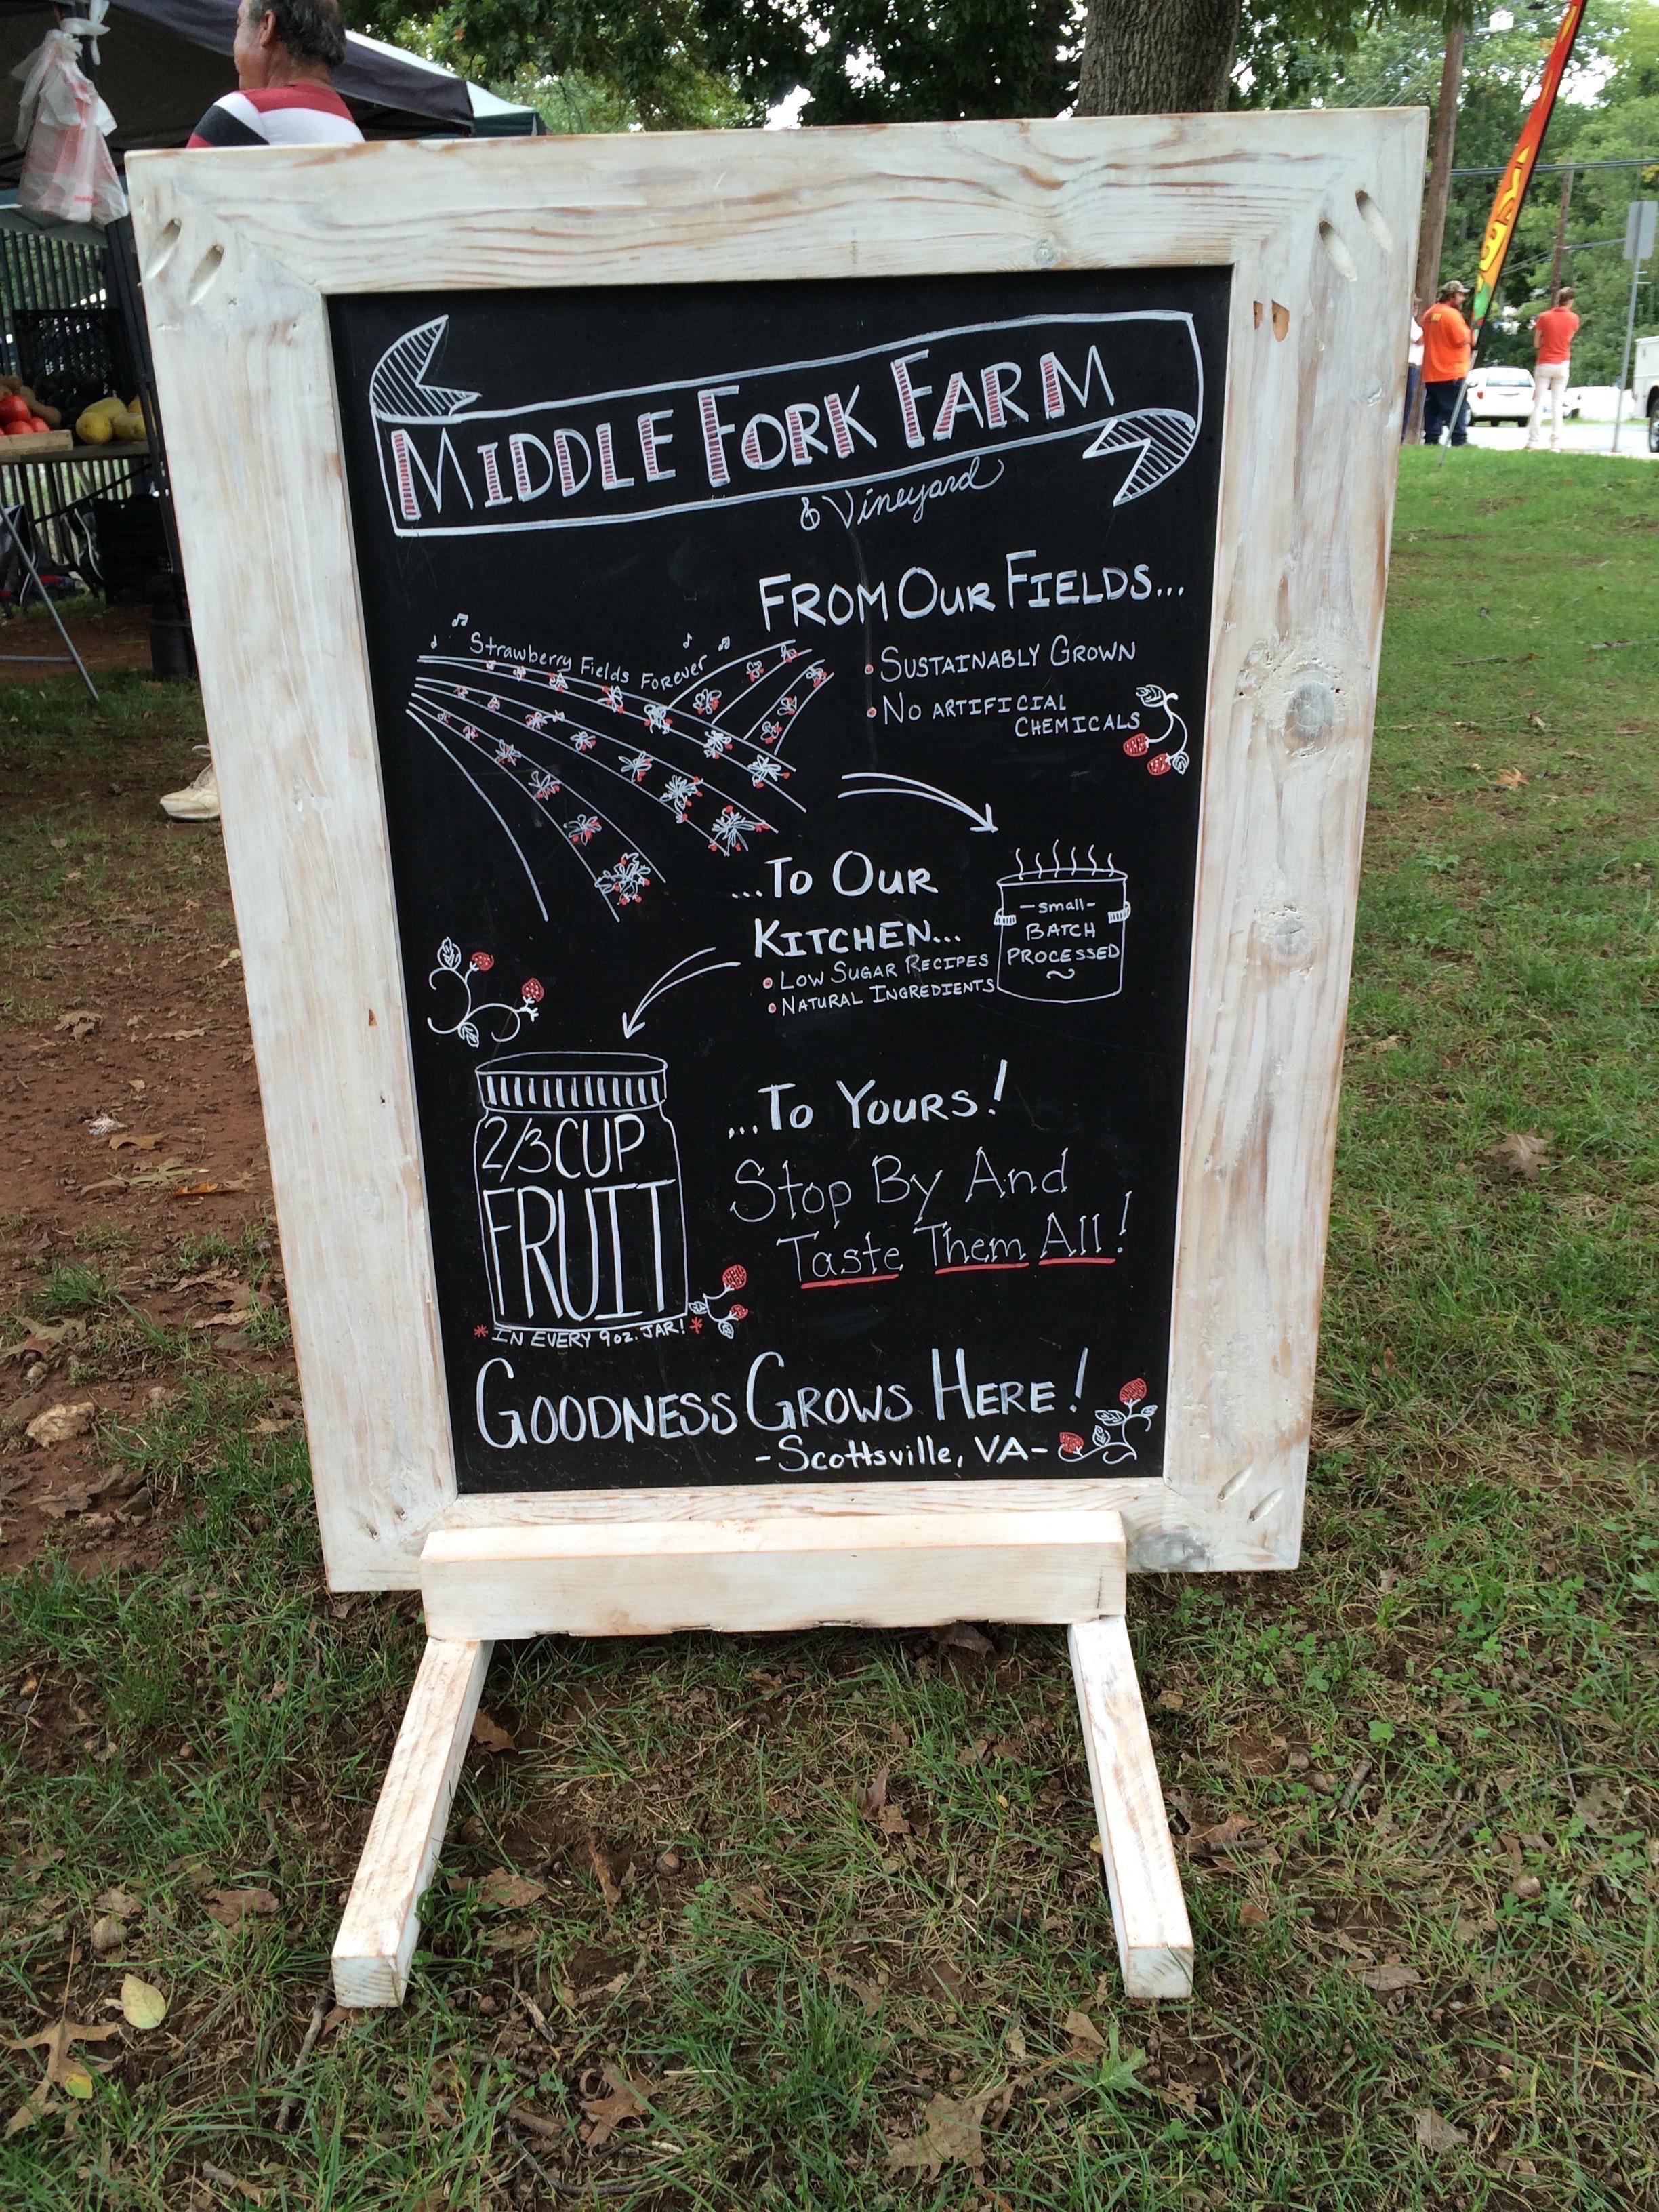 MIDDLE FORK FARM
& Vineyard
FROM OUR FIELDS...
Strawberry Fields Forever
• SUSTAINABLY GROWN
• NO ARTIFICIAL
CHEMICALS
...TO OUR
KITCHEN...
• LOW SUGAR RECIPES
• NATURAL INGREDIENTS
-small-
BATCH
PROCESSED
~
2/3 CUP
FRUIT
*IN EVERY 9oz. JAR!*
...TO YOURS!
Stop By And
Taste Them All!
GOODNESS GROWS HERE!
-Scottsville, VA-